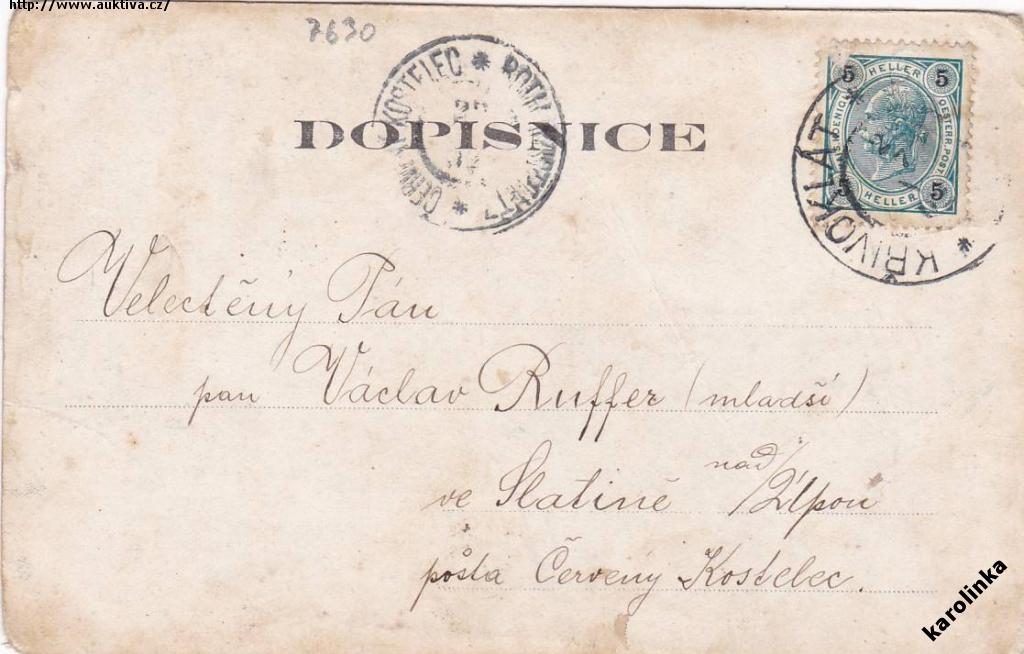 http://www.auktiva.cz/
7630
KOSTELEC * ROTH
DOPISNICE
5 HELLER 5
OESTERR. POST
5 HELLER 5
KŘIVOKLÁT
Velectěný Pán
pan Václav Ruffer (mladší)
ve Slatině nad/Úpou
pošta Červený Kostelec.
karolinka